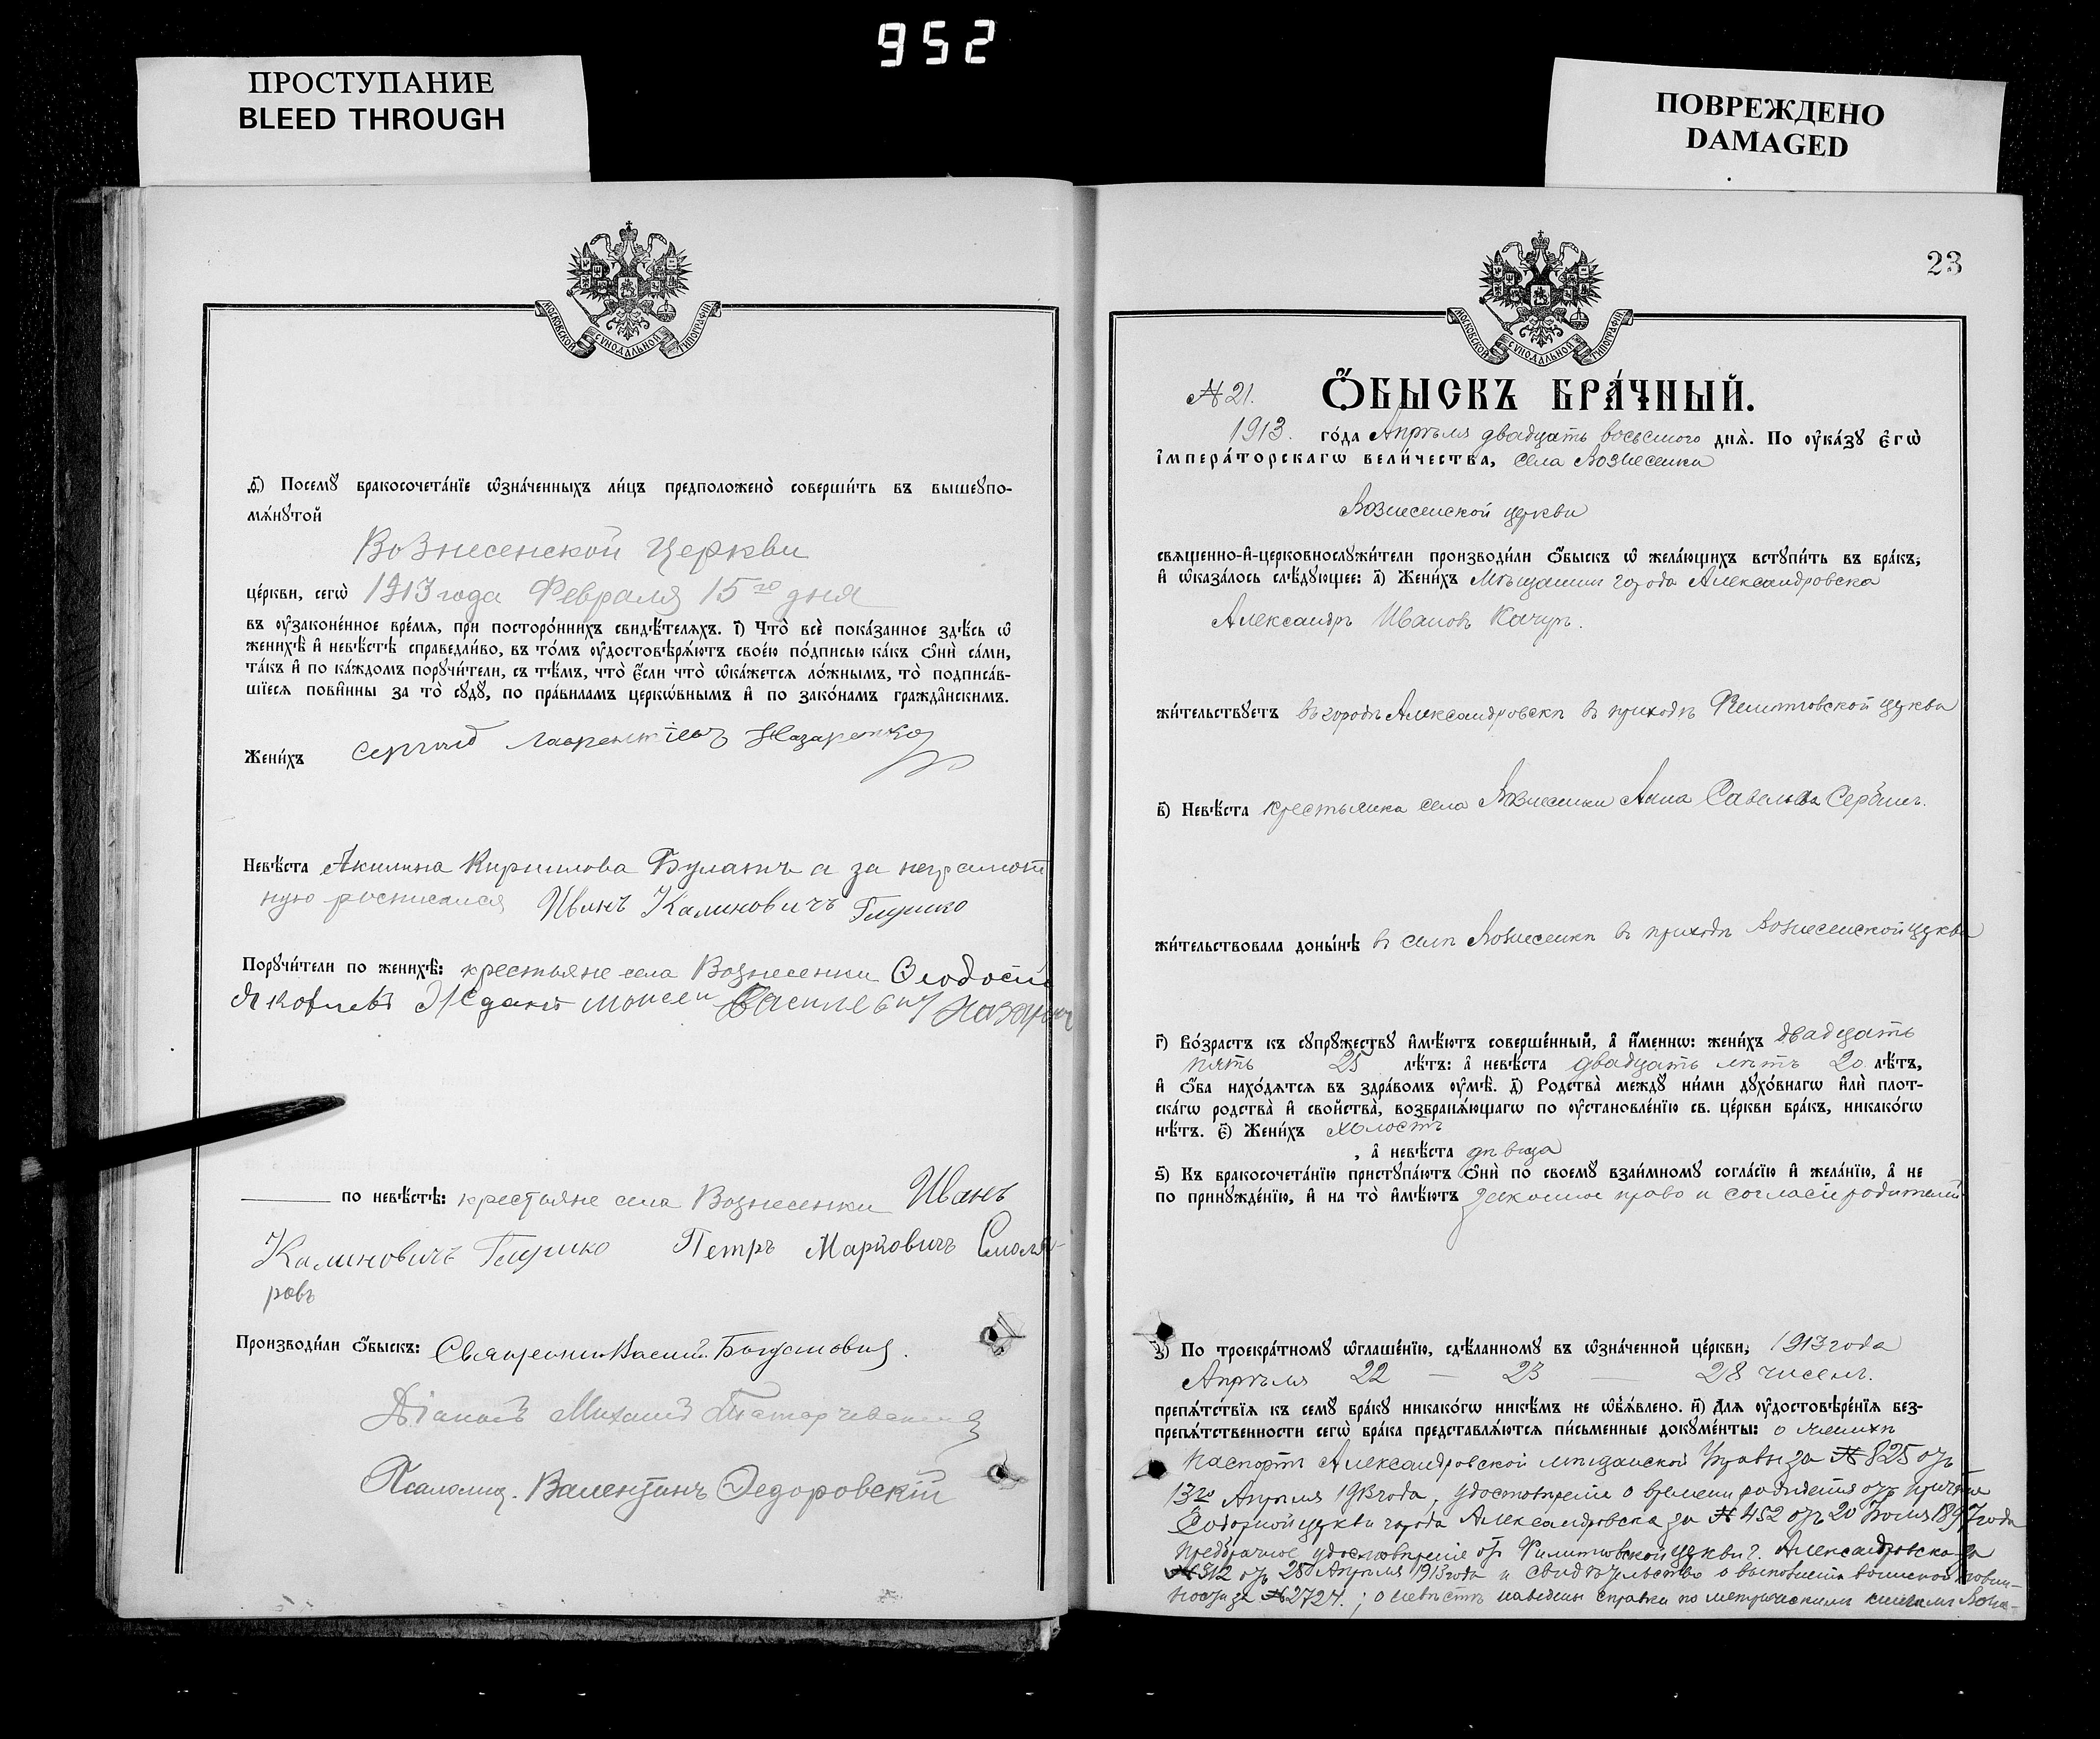 952
ПРОСТУПАНИЕ
BLEED THROUGH
ПОВРЕЖДЕНО
DAMAGED
МОСКОВСКОЙ СѴНОДАЛЬНОЙ ТИПОГРАФІИ
Ѳ҃) Посемꙋ̀ бракосочета́нїе ѡ҆зна́ченныхъ ли́цъ предположено̀ соверши́ть въ вышеꙋпо-
мѧ́нꙋтой
Вознесенской Церкви
це́ркви, сегѡ̀ 1913 года Февраля 15го дня
въ ᲂу҆зако́ненное вре́мѧ, при посторо́ннихъ свидѣ́телѧхъ. І҃) Что̀ всѐ пока́занное здѣ́сь ѡ҆
женихѣ̀ и҆ невѣ́стѣ справедли́во, въ то́мъ ᲂу҆достовѣрѧ́ютъ свое́ю по́дписью ка́къ ѻ҆нѝ са́ми,
та́къ и҆ по ка́ждомъ порꙋчи́тели, съ тѣ́мъ, что̀ є҆́сли что̀ ѡ҆ка́жетсѧ ло́жнымъ, то̀ подписа́в-
шїесѧ пови́нны за то̀ сꙋдꙋ̀, по пра́виламъ церкѡ́внымъ и҆ по зако́намъ гражда̑нскимъ.
Жени́хъ Сергѣй Лаврентіевъ Назаренко
Невѣ́ста Акилина Кирилова Буланъ а за неграмот
ную росписался Иванъ Калиновичъ
Порꙋчи́тели по женихѣ̀: крестьяне села Вознесенки Ѳеодосій
Яковлевъ Жданъ Моисей Васильевич
по невѣ́стѣ: крестьяне села Вознесенки Иванъ
Калиновичъ Петръ Марковичъ Смоля-
ровъ
Производи́ли ѻ҆́быскъ: Священникъ Василій Богдановичъ.
Діаконъ Михаилъ
Псаломщ. Валентинъ Ѳедоровскій
23
МОСКОВСКОЙ СѴНОДАЛЬНОЙ ТИПОГРАФІИ
№ 21. Ѻ҆́БЫСКЪ БРА́ЧНЫЙ.
1913. го́да Апрѣля двадцать восьмого днѧ̀. По ᲂу҆ка́зꙋ Є҆гѡ̀
і҆мпера́торскагѡ вели́чества, села Вознесенки
Вознесенской церкви
свѧще́нно-и҆-церковнослꙋжи́тели производи́ли ѻ҆́быскъ ѡ҆ жела́ющихъ встꙋпи́ть въ бра́къ,
и҆ ѡ҆каза́лось слѣ́дꙋющее: а҃) Жени́хъ Мѣщанинъ города Александровска
Александръ Ивановъ Качуръ.
жи́тельствꙋетъ въ городѣ Александровскѣ въ приходѣ Филипповской церкви
в҃) Невѣ́ста крестьянка села Вознесенки Анна Савельева Сербинъ.
жи́тельствовала доны́нѣ въ селѣ Вознесенкѣ въ приходѣ Вознесенской церкви
г҃) Во́зрастъ къ сꙋпрꙋ́жествꙋ и҆мѣ́ютъ соверше́нный, а҆ и҆́меннѡ: жени́хъ двадцать
пять 25 лѣ́тъ: а҆ невѣ́ста двадцать лѣтъ 20 лѣ́тъ,
и҆ ѻ҆́ба нахо́дѧтсѧ въ здра́вомъ ᲂу҆мѣ̀. д҃) Родства̀ междꙋ̀ ни́ми дꙋхо́внагѡ и҆лѝ плот-
ска́гѡ родства̀ и҆ свойства̀, возбранѧ́ющагѡ по ᲂу҆становле́нїю св. це́ркви бра́къ, никако́гѡ
нѣ́тъ. є҃) Жени́хъ холостъ
, а҆ невѣ́ста дѣвица
ѕ҃) Къ бракосочета́нїю пристꙋпа́ютъ ѻ҆нѝ по своемꙋ̀ взаи́мномꙋ согла́сїю и҆ жела́нїю, а҆ не
по принꙋжде́нїю, и҆ на то̀ и҆мѣ́ютъ законное право и согласіе родителей
з҃) По троекра́тномꙋ ѡ҆глаше́нїю, сдѣ́ланномꙋ въ ѡ҆зна́ченной це́ркви, 1913 года
Апрѣля 22 — 23 — 28 чиселъ.
препѧ́тствїѧ къ семꙋ̀ бра́кꙋ никако́гѡ никѣ́мъ не ѡ҆б̾ѧ́влено. и҃) Длѧ ᲂу҆достовѣре́нїѧ без-
препѧ́тственности сегѡ̀ бра́ка представлѧ́ютсѧ пи́сьменные докꙋме́нты: о женихѣ
паспортъ Александровской мѣщанской Управы за № 825 отъ
13го Апрѣля 1913 года, удостовѣреніе о времени рожденія отъ причта
Соборной церкви города Александровска за № 452 отъ 20 Іюля 1897 года
предбрачное удостовѣреніе отъ Филипповской церкви г. Александровска за
№ 312 отъ 28 Апрѣля 1913 года и свидѣтельство о выполненіи воинской повин-
ности за № 2727.; о невѣстѣ наведены справки по метрическимъ книгамъ Возне-